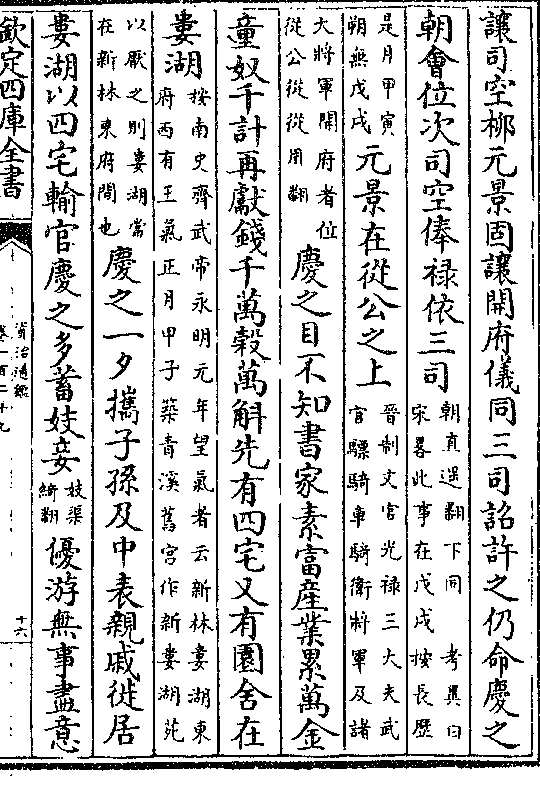 讓司空柳元景固讓開府儀同三司詔許之仍命慶之
朝會位次司空俸禄依三司朝直遥翻下同 考異曰
宋畧此事在戊戌按長歷
是月甲寅
朔無戊戌元景在從公之上晉制文官光禄三大夫武
官驃騎車騎衛將軍及諸
大將軍開府者位
從公從從用翻慶之目不知書家素富産業累萬金
童奴千計再獻錢千萬穀萬斛先有四宅又有園舍在
婁湖按南史齊武帝永明元年望氣者云新林婁湖東
府西有王氣正月甲子築青溪舊宮作新婁湖苑
以厭之則婁湖當
在新林東府間也慶之一夕攜子孫及中表親戚徙居
婁湖以四宅輸官慶之多蓄妓妾妓渠
綺翻優游無事盡意
欽定四庫全書
資治通鑑
卷一百二十九
十六